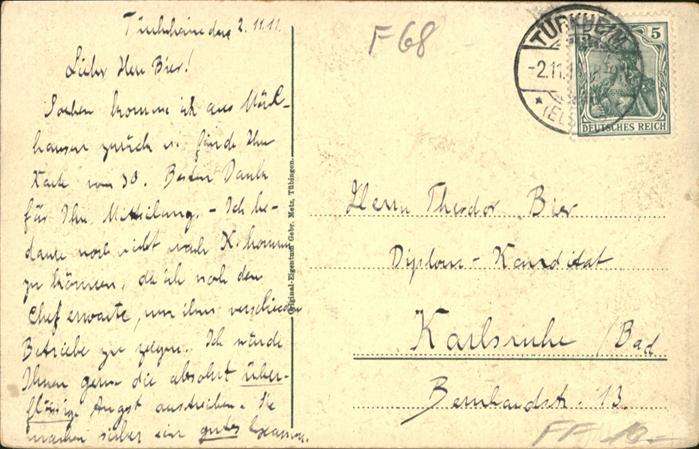 Türkheim den 2.11.11.
Lieber Herr Bier!
Soeben komme ich aus Mül-
hausen zurück u. finde Ihre
Karte vom 30. Besten Dank
für Ihre Mitteilung. - Ich be-
daure noch nicht nach K. kommen
zu können, da ich noch den
Chef erwarte, um ihm verschiedene
Betriebe zu zeigen. Ich würde
Ihnen gerne die absolut über-
flüssige Angst austreiben. Sie
machen sicher ein gutes Examen.
Original-Eigentum Gebr. Metz, Tübingen.
F68
TÜRKHEIM
-2.11.
(ELS
5
DEUTSCHES REICH
Herrn Theodor Bier
Diplom-Kandidat
Karlsruhe / Bad
Bernhardstr. 13.
FF 10-